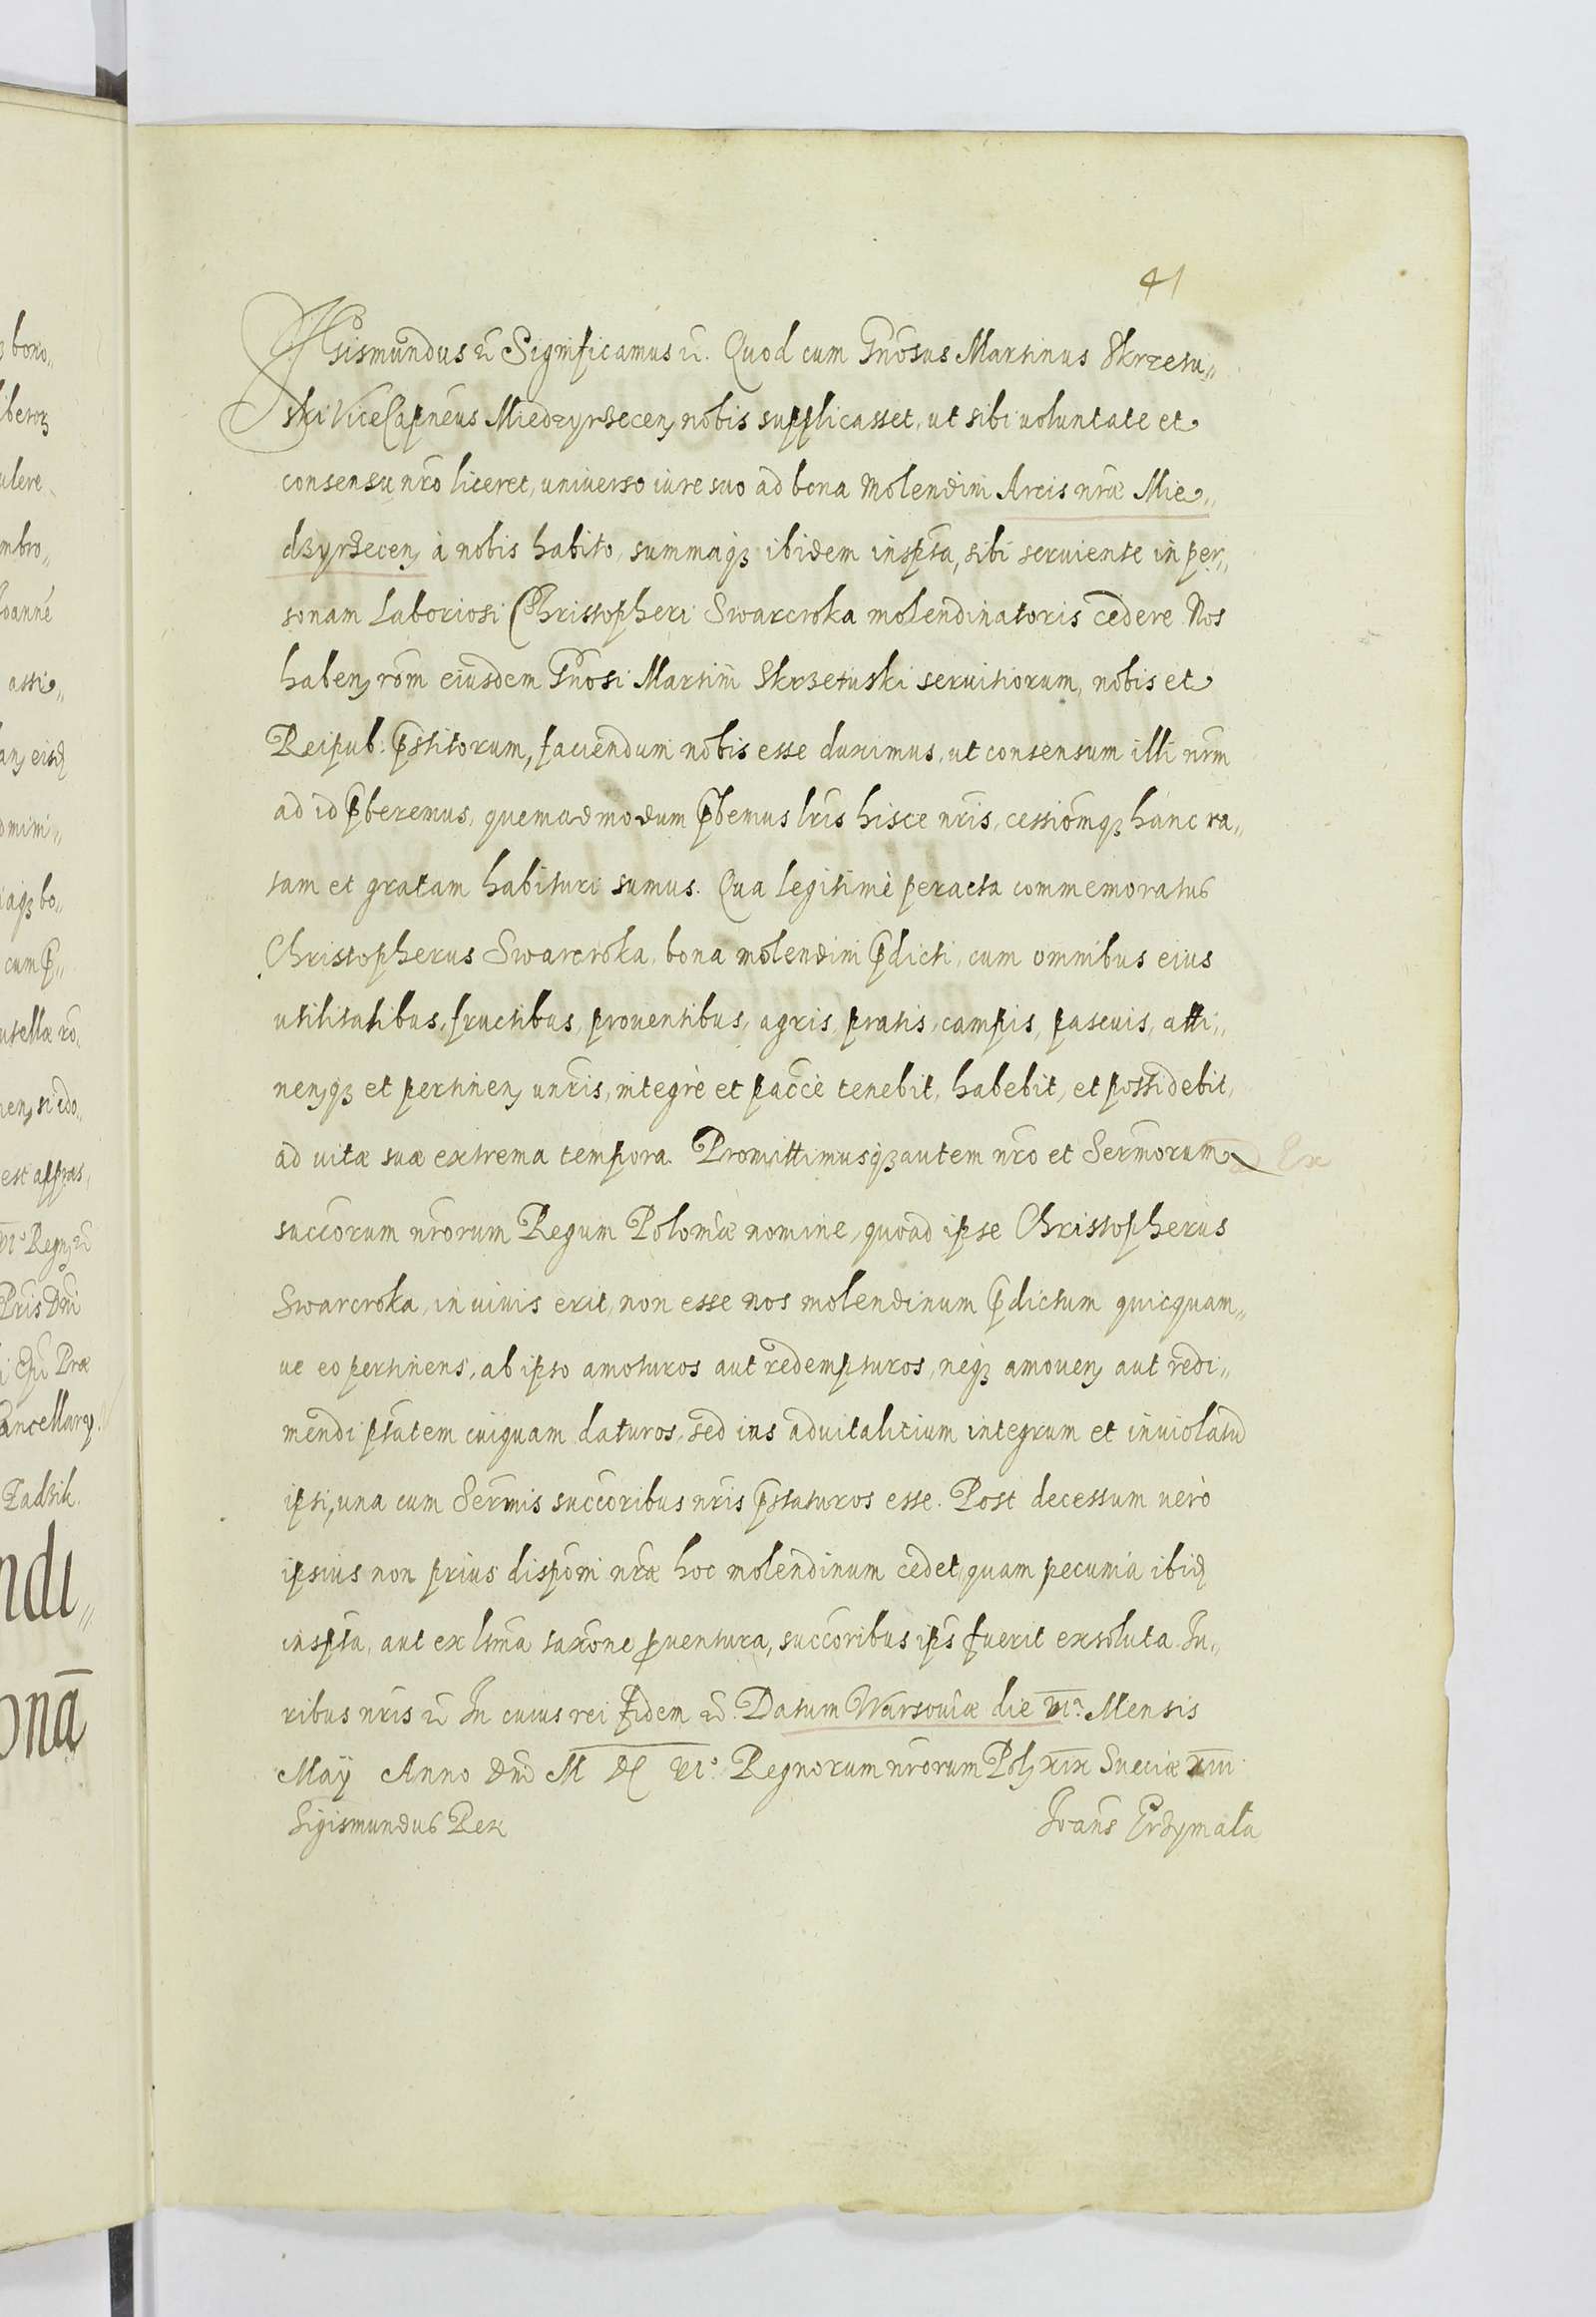 41
Sigismundus etc̃ Significamus etc̃. Quod cum Gnõsus Martinus Skrzetu„
ski ViceCapnẽus Miedzyrzecen̨ nobis supplicasset, ut sibi voluntate et
consensu nrõ liceret, universo iure suo ad bona Molendini Arcis nrã̃e Mie„
dzyrzecen̨ à nobis habito, summaq̨ ibidem inspt̃a, sibi serviente in per„
sonam Laboriosi Christopheri Swarcroka molendinatoris cedere. Nos
haben̨ rõm eiusdem Gnõsi Martini Skrzetuski servitiorum, nobis et
Reipub: p̃stitorum, faciendum nobis esse duximus, ut consensum illi nr̃m
ad id p̃beremus, quemadmodum p̃bemus lr̃is hisce nr̃is, cessiõmq̨ hanc ra„
tam et gratam habituri sumus. Qua legitimè peracta commemoratus
Christopherus Swarcroka, bona molendini p̃dicti, cum omnibus eius
utilitatibus, fructibus, proventibus, agris, pratis, campis, pascuis, atti„
nen̨q̨ et pertinen̨ unr̃is, integrè et pacc̃è tenebit, habebit, et possidebit,
ad vitæ suæ extrema tempora. Promittimusq̨ autem nr̃o et Serm̃orum
succ̃orum nr̃orum Regum Poloniæ nomine, quoad ipse Christopherus
Swarcroka, in vivis erit, non esse nos molendinum p̃dictum quicquam„
ve eo pertinens, ab ipso amoturos aut redempturos, neq̨ amoven̨ aut redi„
mendi pt̃atem cuiquam daturos, sed ius advitalitium integrum et inviolatũ
ipsi, una cum Serm̃is succ̃oribus nr̃is p̃staturos esse. Post decessum verò
ipsius non prius dispõni nr̃æ hoc molendinum cedet, quam pecunia ibid̨
inspt̃a, aut ex ltm̃a taxõne pventura, succ̃oribus ip̃s fuerit exsoluta. Iu„
ribus nr̃is etc̃ In cuius rei fidem etc̃. Datum Warsoviæ die VIᵃ. Mensis
Maÿ Anno Dnĩ M DC VIᵒ. Regnorum nr̃orum Pol̨ XIX Sueciæ XIII
Sigismundus Rex
Ioanẽs Grzymala